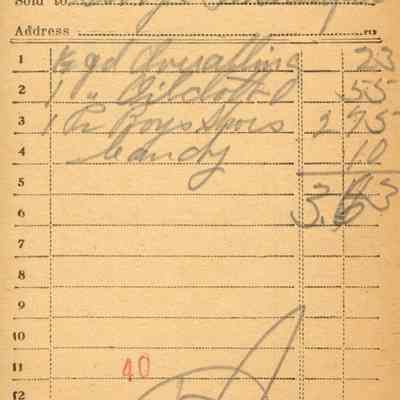 Sold to
Address
1 ½ yd 23
2 1 " Oilcloth 55
3 1 Pr Boys Shoes 2 75
4 Candy 10
5 3 63
6
7
8
9
10
11 40
12